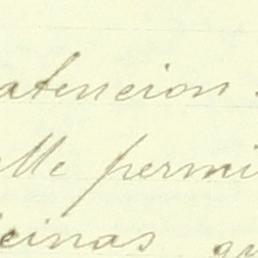 atencion
lle permi
cinas qu